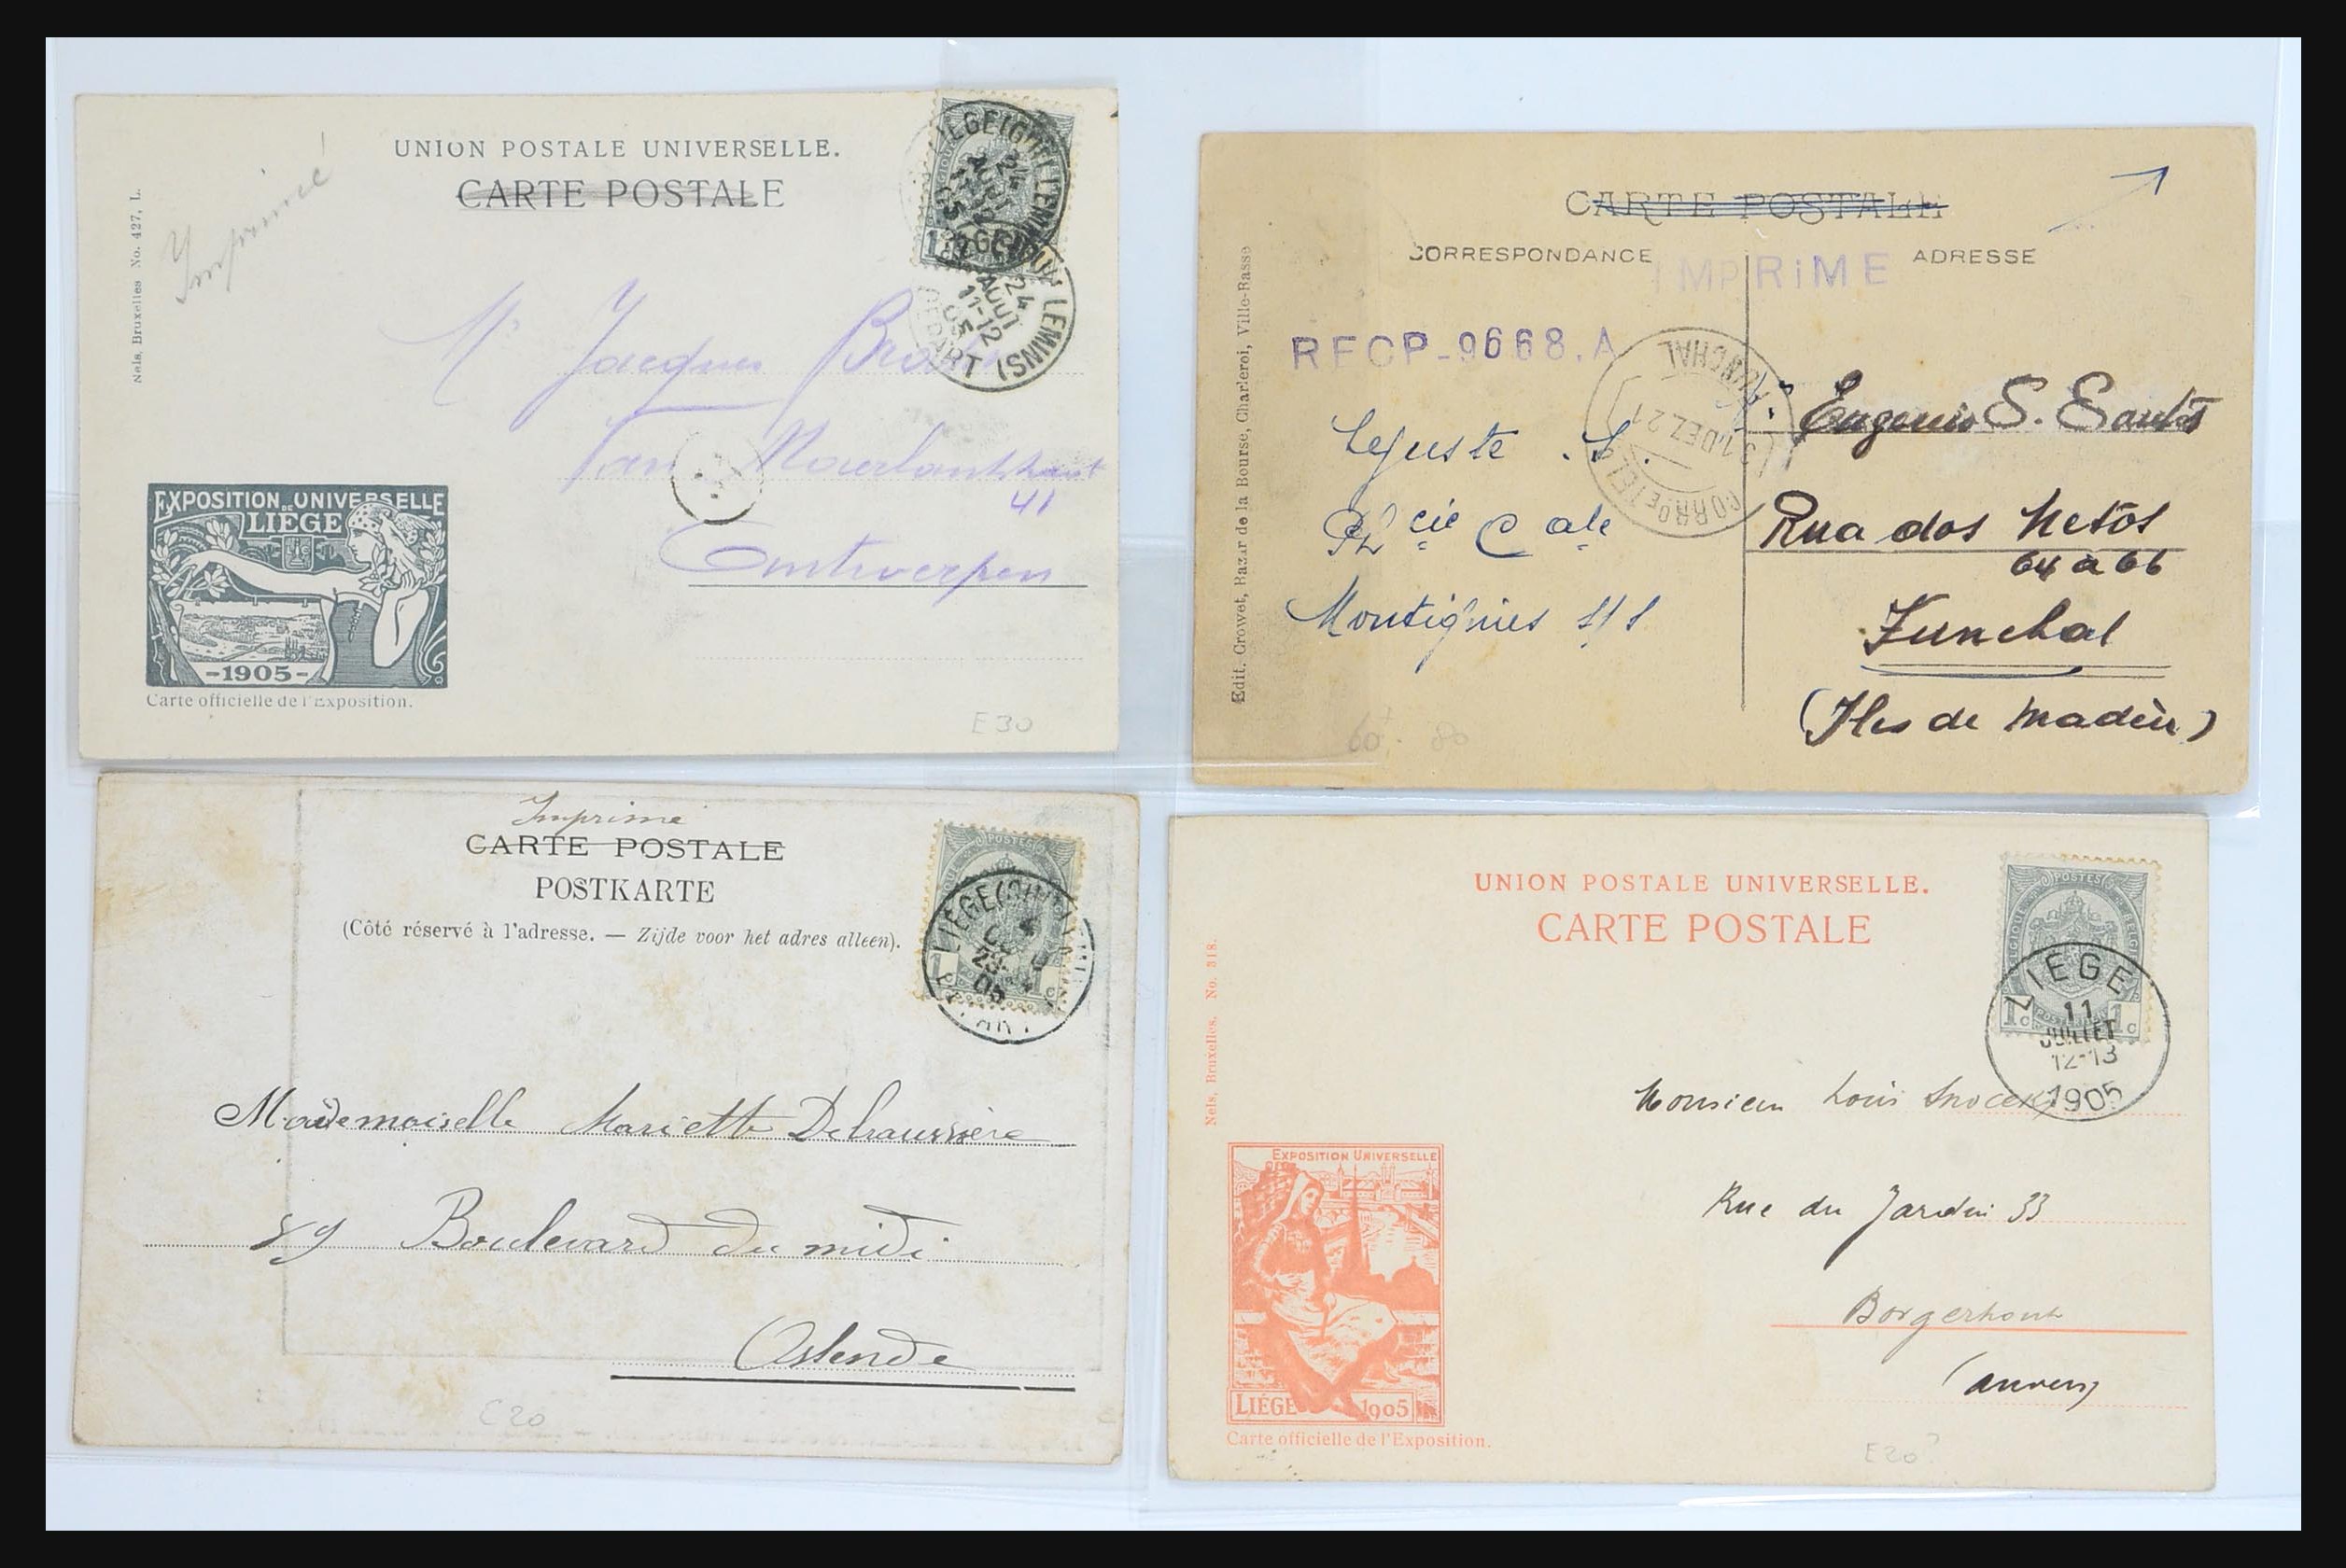 UNION POSTALE UNIVERSELLE.
CARTE POSTALE
Imprimé
Nels, Bruxelles No. 427, L.
LIEGE (GUILLEMINS)
24
AOUT
11-12
05
DEPART
Mr Jacques
41
Antwerpen
EXPOSITION UNIVERSELLE
DE
LIÈGE
-1905-
Carte officielle de l'Exposition.
E30
CARTE POSTALE
CORRESPONDANCE
ADRESSE
IMPRiME
RECP-9668.A
Edit. Crowet, Bazar de la Bourse, Charleroi, Ville-Basse
CORRO E TEL
FUNCHAL
31.DEZ.21
Lejuste . S.
Phcie Cale
Montignies s/s
Eugenio S. Santos
Rua dos Netos
64 a 66
Funchal
(Iles de Madèr)
60 80
Imprime
CARTE POSTALE
POSTKARTE
(Côté réservé à l'adresse. — Zijde voor het adres alleen).
LIEGE
1c
Mademoiselle Mariette Delraussière
89 Boulevard du midi
Ostende
E20
UNION POSTALE UNIVERSELLE.
CARTE POSTALE
Nels, Bruxelles, No. 318.
POSTES
1c 1c
LIEGE
11
JUILLET
12-13
1905
Monsieur Louis Snoeck
Rue du Jardin 33
Borgerhout
(Anvers)
EXPOSITION UNIVERSELLE
LIÉGE 1905
Carte officielle de l'Exposition.
E20?